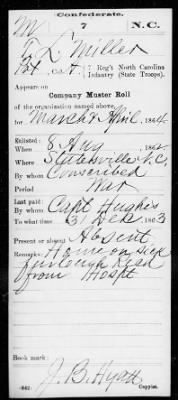 Confederate.
M 7 N.C.
T. L. Miller
Pvt, Co. A, 7 Reg't North Carolina
Infantry (State Troops).
Appears on
Company Muster Roll
of the organization named above,
for March & April, 1864.
Enlisted:
When 8 Aug, 1862.
Where Statesville N.C.
By whom Conscribed
Period War
Last paid:
By whom Capt Hughes
To what time 31 Dec, 1863
Present or absent Absent
Remarks: Home on sick
furlough
from Hospt
Book mark:
J. B. Hyatt
(642) Copyist.